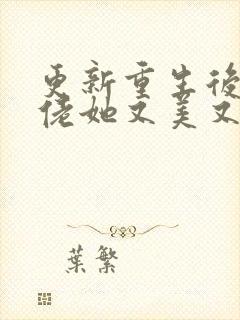 更新重生後
佬她又美又
葉繁